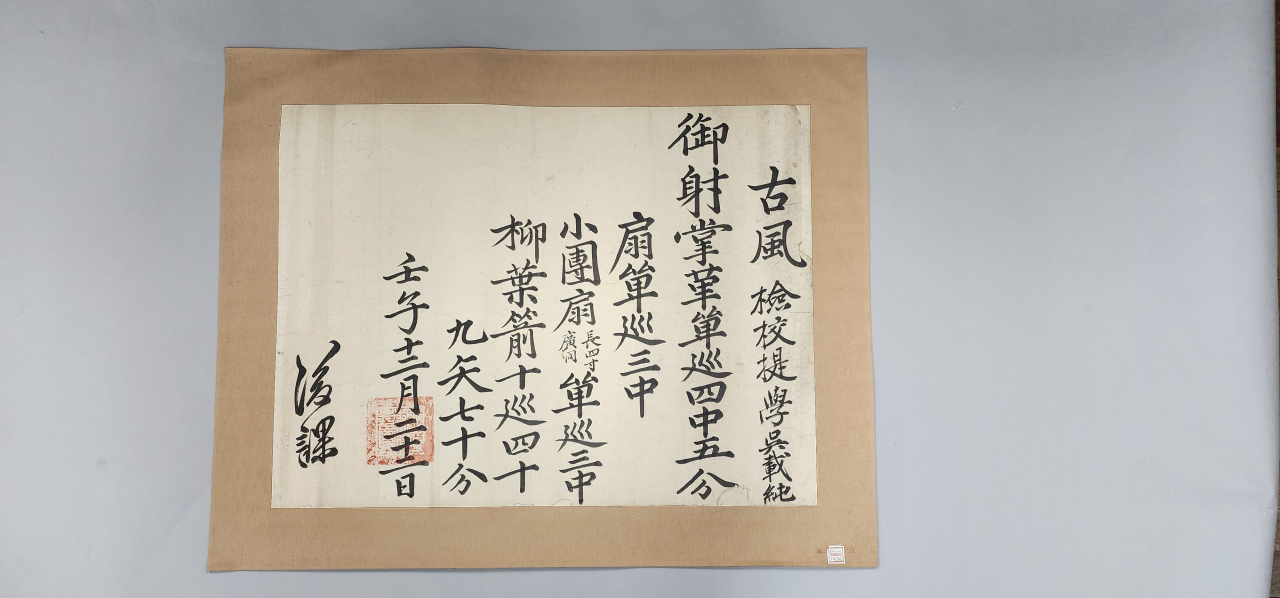 古風 檢校提學吳載純
御射掌革單巡四中五分
扇單巡三中
小團扇 長四寸廣同 單巡三中
柳葉箭十巡四十
九矢七十分
壬子十二月二十一日
後課